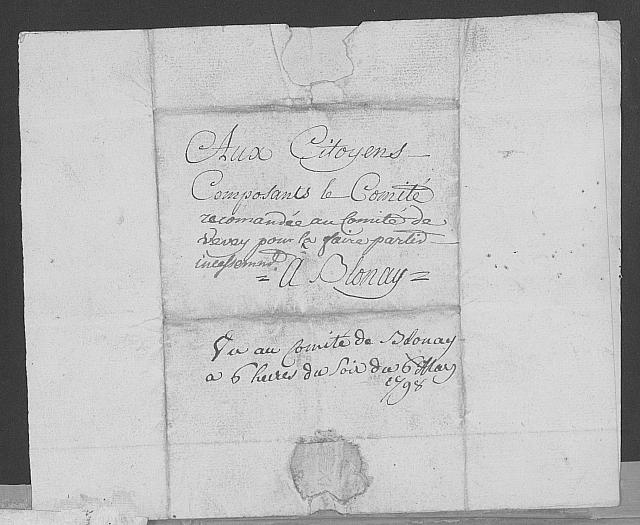 Aux Citoyens
Composants le Comité
recomandée au Comité de
Vevey pour la faire partir
incessement
= A Blonay =
Vu au Comité de Blonay
a 6 heures du Soir du 6 May
98